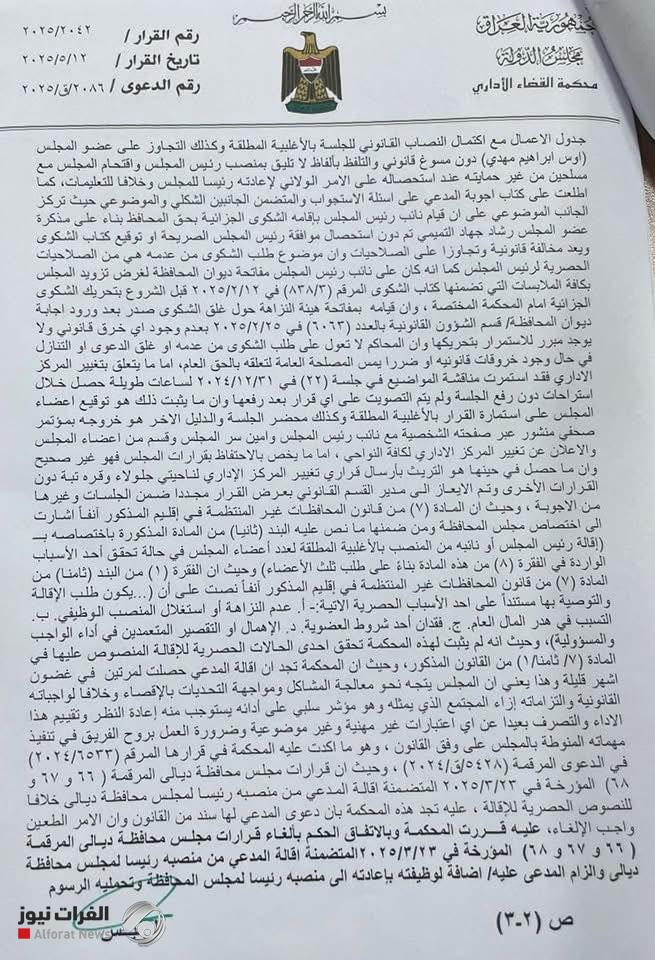 بسم الله الرحمن الرحيم
جمهورية العراق
مجلس الدولة
محكمة القضاء الأداري
رقم القرار / ٢٠٢٥/٢٠٤٢
تاريخ القرار / ٢٠٢٥/٥/١٢
رقم الدعوى / ٢٠٨٦/ق/٢٠٢٥
جدول الاعمال مع اكتمال النصاب القانوني للجلسة بالأغلبية المطلقة وكذلك التجاوز على عضو المجلس
(اوس ابراهيم مهدي) دون مسوغ قانوني والتلفظ بألفاظ لا تليق بمنصب رئيس المجلس واقتحام المجلس مع
مسلحين من غير حمايته عند استحصاله على الامر الولائي لإعادته رئيسا للمجلس وخلافا للتعليمات، كما
اطلعت على كتاب اجوبة المدعي على اسئلة الاستجواب والمتضمن الجانبين الشكلي والموضوعي حيث تركز
الجانب الموضوعي على ان قيام نائب رئيس المجلس بإقامه الشكوى الجزائية بحق المحافظ بناء على مذكرة
عضو المجلس رشاد جهاد التميمي تم دون استحصال موافقة رئيس المجلس الصريحة او توقيع كتاب الشكوى
ويعد مخالفة قانونية وتجاوزا على الصلاحيات وان موضوع طلب الشكوى من عدمه هي من الصلاحيات
الحصرية لرئيس المجلس كما انه كان على نائب رئيس المجلس مفاتحة ديوان المحافظة لغرض تزويد المجلس
بكافة الملابسات التي تضمنها كتاب الشكوى المرقم (٨٣٨/٣) في ٢٠٢٥/٢/١٢ قبل الشروع بتحريك الشكوى
الجزائية امام المحكمة المختصة ، وان قيامه بمفاتحة هيئة النزاهة حول غلق الشكوى صدر بعد ورود اجابة
ديوان المحافظة/ قسم الشؤون القانونية بالعدد (٦٠٦٣) في ٢٠٢٥/٢/٢٥ بعدم وجود اي خرق قانوني ولا
يوجد مبرر للاستمرار بتحريكها وان المحاكم لا تعول على طلب الشكوى من عدمه او غلق الدعوى او التنازل
في حال وجود خروقات قانونيه او ضررا يمس المصلحة العامة لتعلقه بالحق العام، اما ما يتعلق بتغيير المركز
الاداري فقد استمرت مناقشة المواضيع في جلسة (٢٢) في ٢٠٢٤/١٢/٣١ لساعات طويلة حصل خلال
استراحات دون رفع الجلسة ولم يتم التصويت على اي قرار بعد رفعها وان ما يثبت ذلك هو توقيع اعضاء
المجلس على استمارة القرار بالأغلبية المطلقة وكذلك محضر الجلسة والدليل الاخر هو خروجه بمؤتمر
صحفي منشور عبر صفحته الشخصية مع نائب رئيس المجلس وامين سر المجلس وقسم من اعضاء المجلس
والاعلان عن تغيير المركز الاداري لكافة النواحي ، اما ما يخص بالاحتفاظ بقرارات المجلس فهو غير صحيح
وان ما حصل في حينها هو التريث بأرسال قراري تغيير المركز الإداري لناحيتي جلولاء وقره تبة دون
القرارات الأخرى وتم الايعاز الى مدير القسم القانوني بعرض القرار مجددا ضمن الجلسات وغيرها
من الاجوبة ، وحيث ان المادة (٧) من قانون المحافظات غير المنتظمة في إقليم المذكور آنفاً اشارت
الى اختصاص مجلس المحافظة ومن ضمنها ما نص عليه البند (ثانيا) من المادة المذكورة باختصاصه بـ
(إقالة رئيس المجلس أو نائبه من المنصب بالأغلبية المطلقة لعدد أعضاء المجلس في حالة تحقق أحد الأسباب
الواردة في الفقرة (٨) من هذه المادة بناءً على طلب ثلث الأعضاء) وحيث ان الفقرة (١) من البند (ثامنا) من
المادة (٧) من قانون المحافظات غير المنتظمة في إقليم المذكور آنفاً نصت على أن (...يكون طلب الإقالة
والتوصية بها مستنداً على احد الأسباب الحصرية الاتية:- أ. عدم النزاهة أو استغلال المنصب الوظيفي. ب.
التسبب في هدر المال العام. ج. فقدان أحد شروط العضوية. د. الإهمال او التقصير المتعمدين في أداء الواجب
والمسؤولية)، وحيث انه لم يثبت لهذه المحكمة تحقق احدى الحالات الحصرية للإقالة المنصوص عليها في
المادة (٧/ ثامنا/١) من القانون المذكور، وحيث ان المحكمة تجد ان اقالة المدعي حصلت لمرتين في غضون
اشهر قليلة وهذا يعني ان المجلس يتجه نحو معالجة المشاكل ومواجهة التحديات بالإقصاء وخلافا لواجباته
القانونية والتزاماته إزاء المجتمع الذي يمثله وهو مؤشر سلبي على أدائه يستوجب منه إعادة النظر وتقييم هذا
الاداء والتصرف بعيدا عن اي اعتبارات غير مهنية وغير موضوعية وضرورة العمل بروح الفريق في تنفيذ
مهماته المنوطة بالمجلس على وفق القانون ، وهو ما اكدت عليه المحكمة في قرارها المرقم (٢٠٢٤/٦٥٣٣)
في الدعوى المرقمة (٥٤٢٨/ق/٢٠٢٤) ، وحيث ان قرارات مجلس محافظة ديالى المرقمة ( ٦٦ و ٦٧ و
٦٨) المؤرخة في ٢٠٢٥/٣/٢٣ المتضمنة اقالة المدعي من منصبه رئيسا لمجلس محافظة ديالى خلافا
للنصوص الحصرية للإقالة ، عليه تجد هذه المحكمة بان دعوى المدعي لها سند من القانون وان الامر الطعين
واجب الإلغاء، عليه قررت المحكمة وبالاتفاق الحكم بألغاء قرارات مجلس محافظة ديالى المرقمة
( ٦٦ و ٦٧ و ٦٨) المؤرخة في ٢٠٢٥/٣/٢٣ المتضمنة اقالة المدعي من منصبه رئيسا لمجلس محافظة
ديالى والزام المدعى عليه/ اضافة لوظيفته بإعادته الى منصبه رئيسا لمجلس المحافظة وتحميله الرسوم
ص (٢-٣)
الفرات نيوز
Alforat News